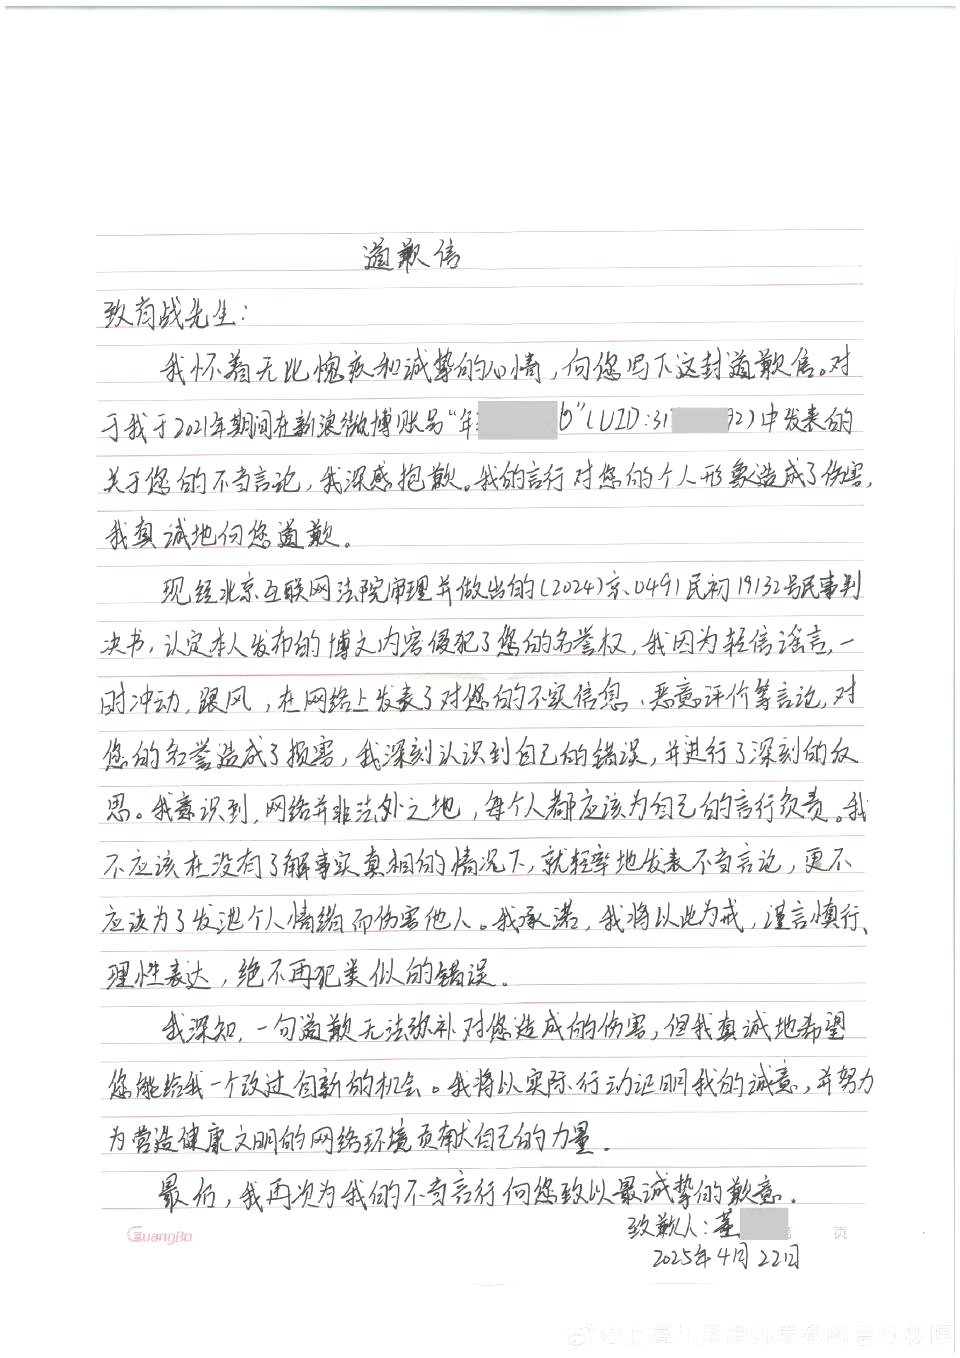 道歉信
致肖战先生：
我怀着无比愧疚和诚挚的心情，向您写下这封道歉信。对
于我于2021年期间在新浪微博账号“年 b”（UID:31 92）中发表的
关于您的不当言论，我深感抱歉。我的言行对您的个人形象造成了伤害，
我真诚地向您道歉。
现经北京互联网法院审理并做出的（2024）京0491民初19132号民事判
决书，认定本人发布的博文内容侵犯了您的名誉权，我因为轻信谣言，一
时冲动，跟风，在网络上发表了对您的不实信息、恶意评价等言论，对
您的名誉造成了损害，我深刻认识到自己的错误，并进行了深刻的反
思。我意识到，网络并非法外之地，每个人都应该为自己的言行负责。我
不应该在没有了解事实真相的情况下，就轻率地发表不当言论，更不
应该为了发泄个人情绪而伤害他人。我承诺，我将以此为戒，谨言慎行、
理性表达，绝不再犯类似的错误。
我深知，一句道歉无法弥补对您造成的伤害，但我真诚地希望
您能给我一个改过自新的机会。我将以实际行动证明我的诚意，并努力
为营造健康文明的网络环境贡献自己的力量。
最后，我再次为我的不当言行向您致以最诚挚的歉意。
致歉人：董
GuangBo 页
2025年4月22日